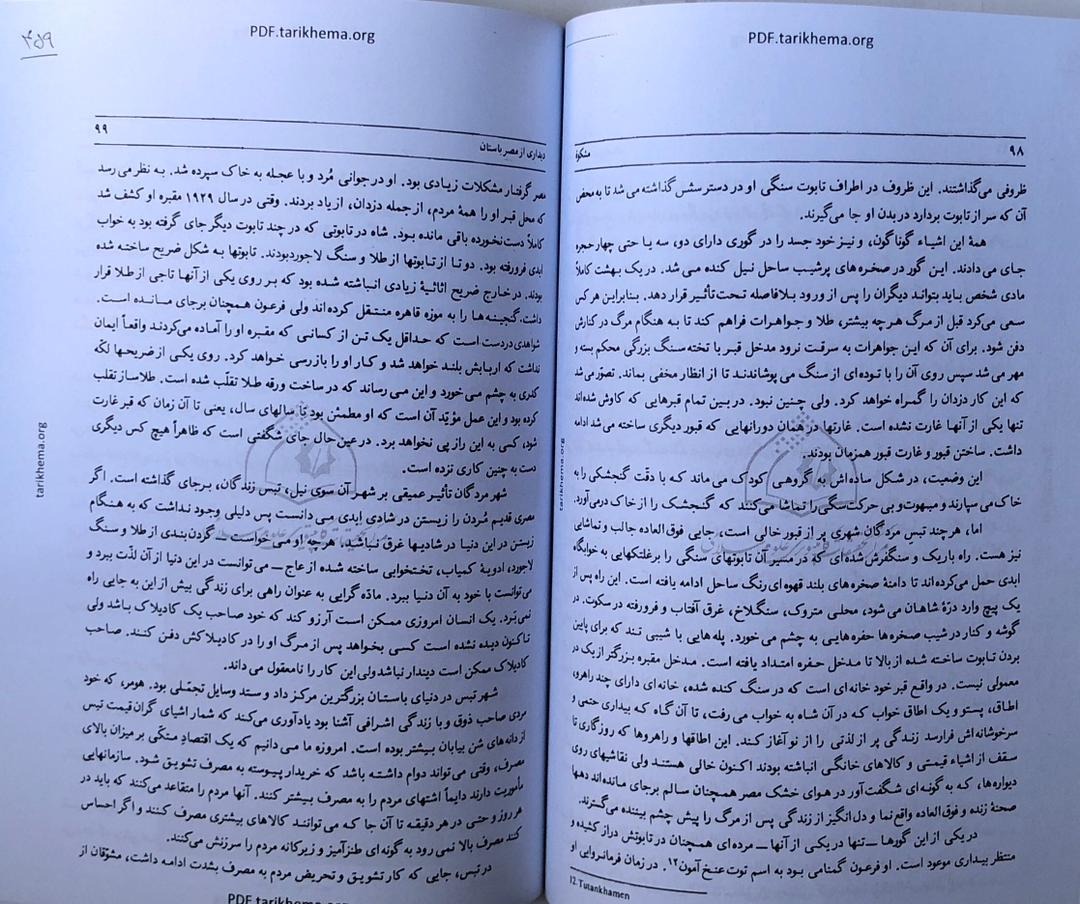 PDF.tarikhema.org
۹۸
مشکوة
ظروفی می‌گذاشتند. این ظروف در اطراف تابوت سنگی او در دسترسش گذاشته می‌شد تا به محض
آن که سر از تابوت بردارد در بدن او جا می‌گیرند.
همهٔ این اشیاء گوناگون، و نیز خود جسد را در گوری دارای دو، سه یا حتی چهار حجره
جای می‌دادند. این گور در صخره‌های پرشیب ساحل نیل کنده می‌شد. در یک بهشت کاملاً
مادی شخص باید بتواند دیگران را پس از ورود بلافاصله تحت تأثیر قرار دهد. بنابراین هر کس
سعی می‌کرد قبل از مرگ هر چه بیشتر، طلا و جواهرات فراهم کند تا به هنگام مرگ در کنارش
دفن شود. برای آن که این جواهرات به سرقت نرود مدخل قبر با تخته سنگ بزرگی محکم بسته و
مهر می‌شد سپس روی آن را با توده‌ای از سنگ می‌پوشاندند تا از انظار مخفی بماند. تصور می‌شد
که این کار دزدان را گمراه خواهد کرد. ولی چنین نبود. در بین تمام قبرهایی که کاوش شده‌اند
تنها یکی از آنها غارت نشده است. غارتها در همان دورانهایی که قبور دیگری ساخته می‌شد ادامه
داشت. ساختن قبور و غارت قبور همزمان بودند.
این وضعیت، در شکل ساده‌اش به گروهی کودک می‌ماند که با دقّت گنجشکی را به
خاک می‌سپارند و مبهوت و بی حرکت سگی را تماشا می‌کنند که گنجشک را از خاک درمی‌آورد.
اما، هر چند تبس مردگان شهری پر از قبور خالی است، جایی فوق العاده جالب و تماشایی
نیز هست. راه باریک و سنگفرش شده‌ای که در مسیر آن تابوتهای سنگی را برغلتکهایی به خوابگاه
ابدی حمل می‌کرده‌اند تا دامنهٔ صخره‌های بلند قهوه‌ای رنگ ساحل ادامه یافته است. این راه پس از
یک پیچ وارد درّهٔ شاهان می‌شود، محلی متروک، سنگلاخ، غرق آفتاب و فرورفته در سکوت. در
گوشه و کنار در شیب صخره‌ها حفره‌هایی به چشم می‌خورد. پله‌هایی با شیبی تند که برای پایین
بردن تابوت ساخته شده از بالا تا مدخل حفره امتداد یافته است. مدخل مقبره بزرگتر از یک در
معمولی نیست. در واقع قبر خود خانه‌ای است که در سنگ کنده شده، خانه‌ای دارای چند راهرو،
اطاق، پستو و یک اطاق خواب که در آن شاه به خواب می‌رفت، تا آن گاه که بیداری حتمی و
سرخوشانه‌اش فرارسد زندگی پر از لذتی را از نو آغاز کند. این اطاقها و راهروها که روزگاری تا
سقف از اشیاء قیمتی و کالاهای خانگی انباشته بودند اکنون خالی هستند ولی نقاشیهای روی
دیواره‌ها، که به گونه‌ای شگفت‌آور در هوای خشک مصر همچنان سالم برجای مانده‌اند دهها
صحنهٔ زنده و فوق العاده واقع نما و دل انگیز از زندگی پس از مرگ را پیش چشم بیننده می‌گسترند.
در یکی از این گورها ــ تنها در یکی از آنها ــ مرده‌ای همچنان در تابوتش دراز کشیده و
منتظر بیداری موعود است. او فرعون گمنامی بود به اسم توت عنخ آمون۱۲. در زمان فرمانروایی او
12. Tutankhamen
tarikhema.org
PDF.tarikhema.org
۴۵۹
دیداری از مصر باستان
۹۹
مصر گرفتار مشکلات زیادی بود. او در جوانی مُرد و با عجله به خاک سپرده شد. به نظر می‌رسد
که محل قبر او را همهٔ مردم، از جمله دزدان، از یاد بردند. وقتی در سال ۱۹۲۹ مقبره او کشف شد
کاملاً دست نخورده باقی مانده بود. شاه در تابوتی که در چند تابوت دیگر جای گرفته بود به خواب
ابدی فرورفته بود. دو تا از تابوتها از طلا و سنگ لاجورد بودند. تابوتها به شکل ضریح ساخته شده
بودند. در خارج ضریح اثاثیهٔ زیادی انباشته شده بود که بر روی یکی از آنها تاجی از طلا قرار
داشت. گنجینه‌ها را به موزه قاهره منتقل کرده‌اند ولی فرعون همچنان برجای مانده است.
شواهدی در دست است که حداقل یک تن از کسانی که مقبره او را آماده می‌کردند واقعاً ایمان
نداشت که اربابش بلند خواهد شد و کار او را بازرسی خواهد کرد. روی یکی از ضریحها لکّه
کدری به چشم می‌خورد و این می‌رساند که در ساخت ورقه طلا تقلّب شده است. طلاساز تقلب
کرده بود و این عمل مؤیّد آن است که او مطمئن بود تا سالهای سال، یعنی تا آن زمان که قبر غارت
شود، کسی به این راز پی نخواهد برد. در عین حال جای شگفتی است که ظاهراً هیچ کس دیگری
دست به چنین کاری نزده است.
شهر مردگان تأثیر عمیقی بر شهر آن سوی نیل، تبس زندگان، برجای گذاشته است. اگر
مصری قدیم مُردن را زیستن در شادی ابدی می‌دانست پس دلیلی وجود نداشت که به هنگام
زیستن در این دنیا در شادیها غرق نباشد، هر چه او می‌خواست ــ گردن‌بندی از طلا و سنگ
لاجورد، ادویهٔ کمیاب، تختخوابی ساخته شده از عاج ــ می‌توانست در این دنیا از آن لذّت ببرد و
می‌توانست با خود به آن دنیا ببرد. مادّه گرایی به عنوان راهی برای زندگی بیش از این به جایی راه
نمی‌بَرَد. یک انسان امروزی ممکن است آرزو کند که خود صاحب یک کادیلاک باشد ولی
تاکنون دیده نشده است کسی بخواهد پس از مرگ او را در کادیلاکش دفن کنند. صاحب
کادیلاک ممکن است دیندار نباشد ولی این کار را نامعقول می‌داند.
شهر تبس در دنیای باستان بزرگترین مرکز داد و ستد وسایل تجمّلی بود. هومر، که خود
مردی صاحب ذوق و با زندگی اشرافی آشنا بود یادآوری می‌کند که شمار اشیای گران قیمت تبس
از دانه‌های شن بیابان بیشتر بوده است. امروزه ما می‌دانیم که یک اقتصادِ متکّی بر میزان بالای
مصرف، وقتی می‌تواند دوام داشته باشد که خریدار پیوسته به مصرف تشویق شود. سازمانهایی
مأموریت دارند دایماً اشتهای مردم را به مصرف بیشتر کنند. آنها مردم را متقاعد می‌کنند که باید در
هر روز و حتی در هر دقیقه تا آن جا که می‌توانند کالاهای بیشتری مصرف کنند و اگر احساس
کنند مصرف بالا نمی‌رود به گونه‌ای طنزآمیز و زیرکانه مردم را سرزنش می‌کنند.
در تبس، جایی که کار تشویق و تحریض مردم به مصرف بشدت ادامه داشت، مشوّقان از
tarikhema.org
PDF.tarikhema.org